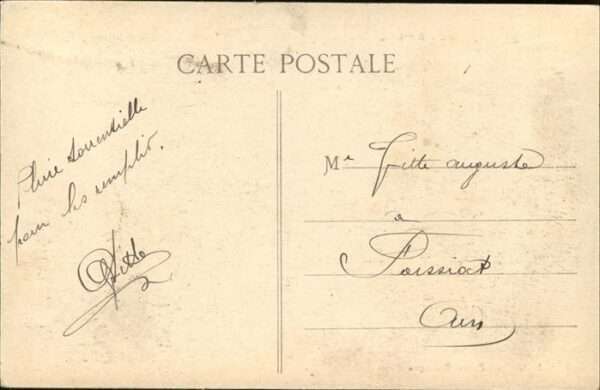 CARTE POSTALE
Pluie torrentielle
pour les remplir.
Fitte
Mr Fitte auguste
à
Foissiat
Ain